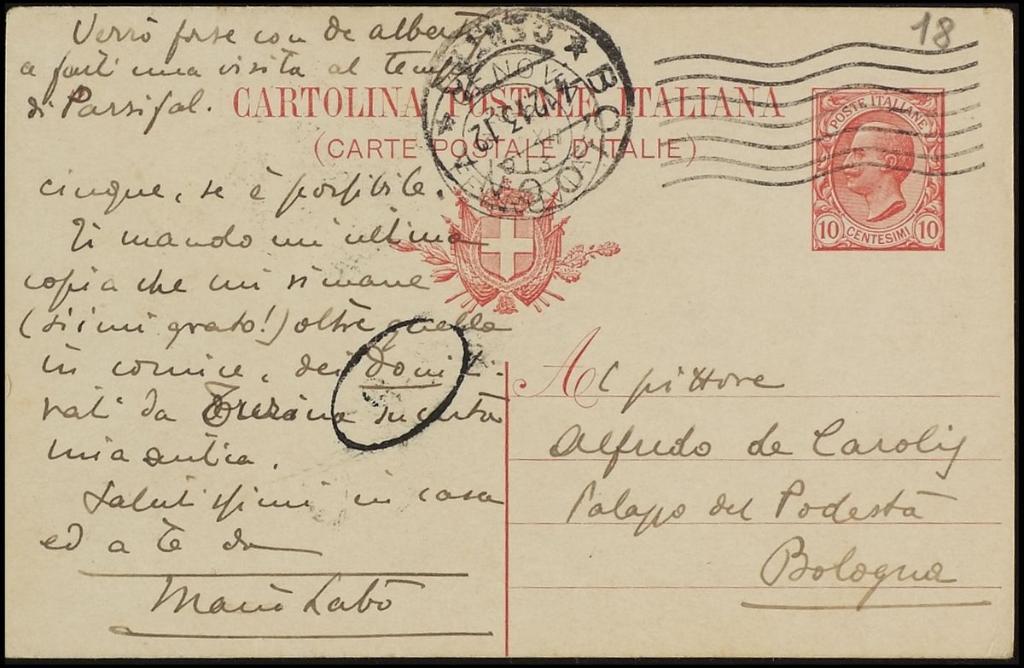 Verrò forse con de albert
a farti una visita al tem
di Parsifal.
18
CARTOLINA POSTALE ITALIANA
(CARTE POSTALE D'ITALIE)
BOLOGNA
CENTRO
POSTE ITALIANE
10 CENTESIMI 10
cinque, se è possibile.
Ti mando un'ultima
copia che mi rimane
(siimi grato!) oltre quella
in cornice, dei Doni
da
mia antica.
Salutissimi in casa
ed a te da
Mario Labò
Al pittore
Alfredo de Carolis
Palazzo del Podestà
Bologna